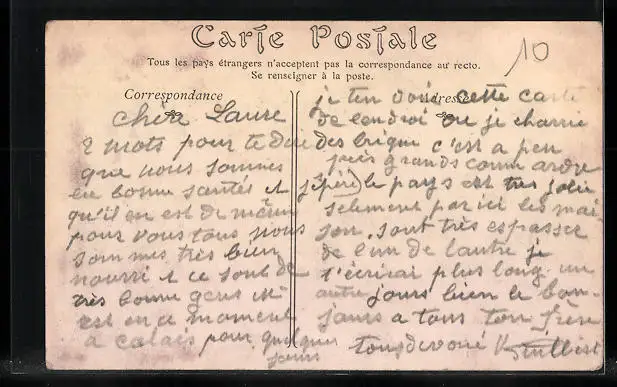 Carte Postale
10
Tous les pays étrangers n'acceptent pas la correspondance au recto.
Se renseigner à la poste.
Correspondance
Adresse
Chère Laure
2 mots pour te dire
que nous sommes
en bonne santés et j'ésperè
qu'il en est de même
pour vous tous nous
sommes très bien
nourri et ce sont de
très bonne gens
est en ce moment
a calais pour quelques
jours
je ten voie cette carte
de lendroi ou je charrie
des brique c'est a peu
près grands come ardre
le pays est très jolie
selement par ici les mai
son sont très espasser
de lun de lautre je
t'écrirai plus long un
autre jours bien le bon-
jours a tous ton frère
tous devoué